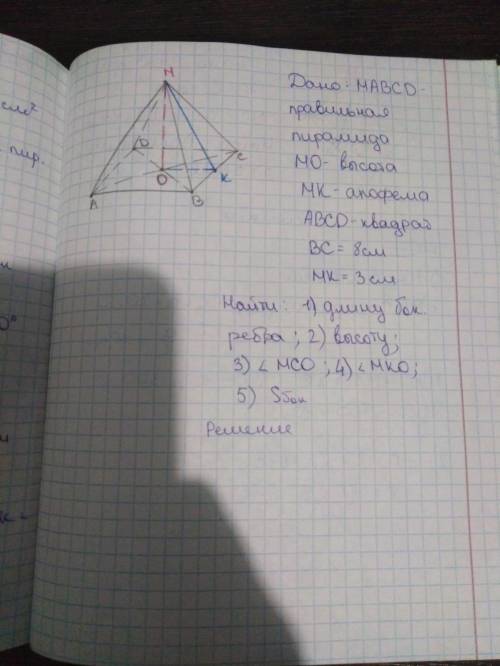 M
D
C
O
K
A
B
см²
пир.
Дано: MABCD-
правильная
пирамида
MO- высота
MK- апофема
ABCD-квадрат
BC = 8см
MK = 3см
Найти: 1) длину бок.
ребра ; 2) высоту;
3) ∠ MCO ; 4) ∠ MKO;
5) Sбок
Решение